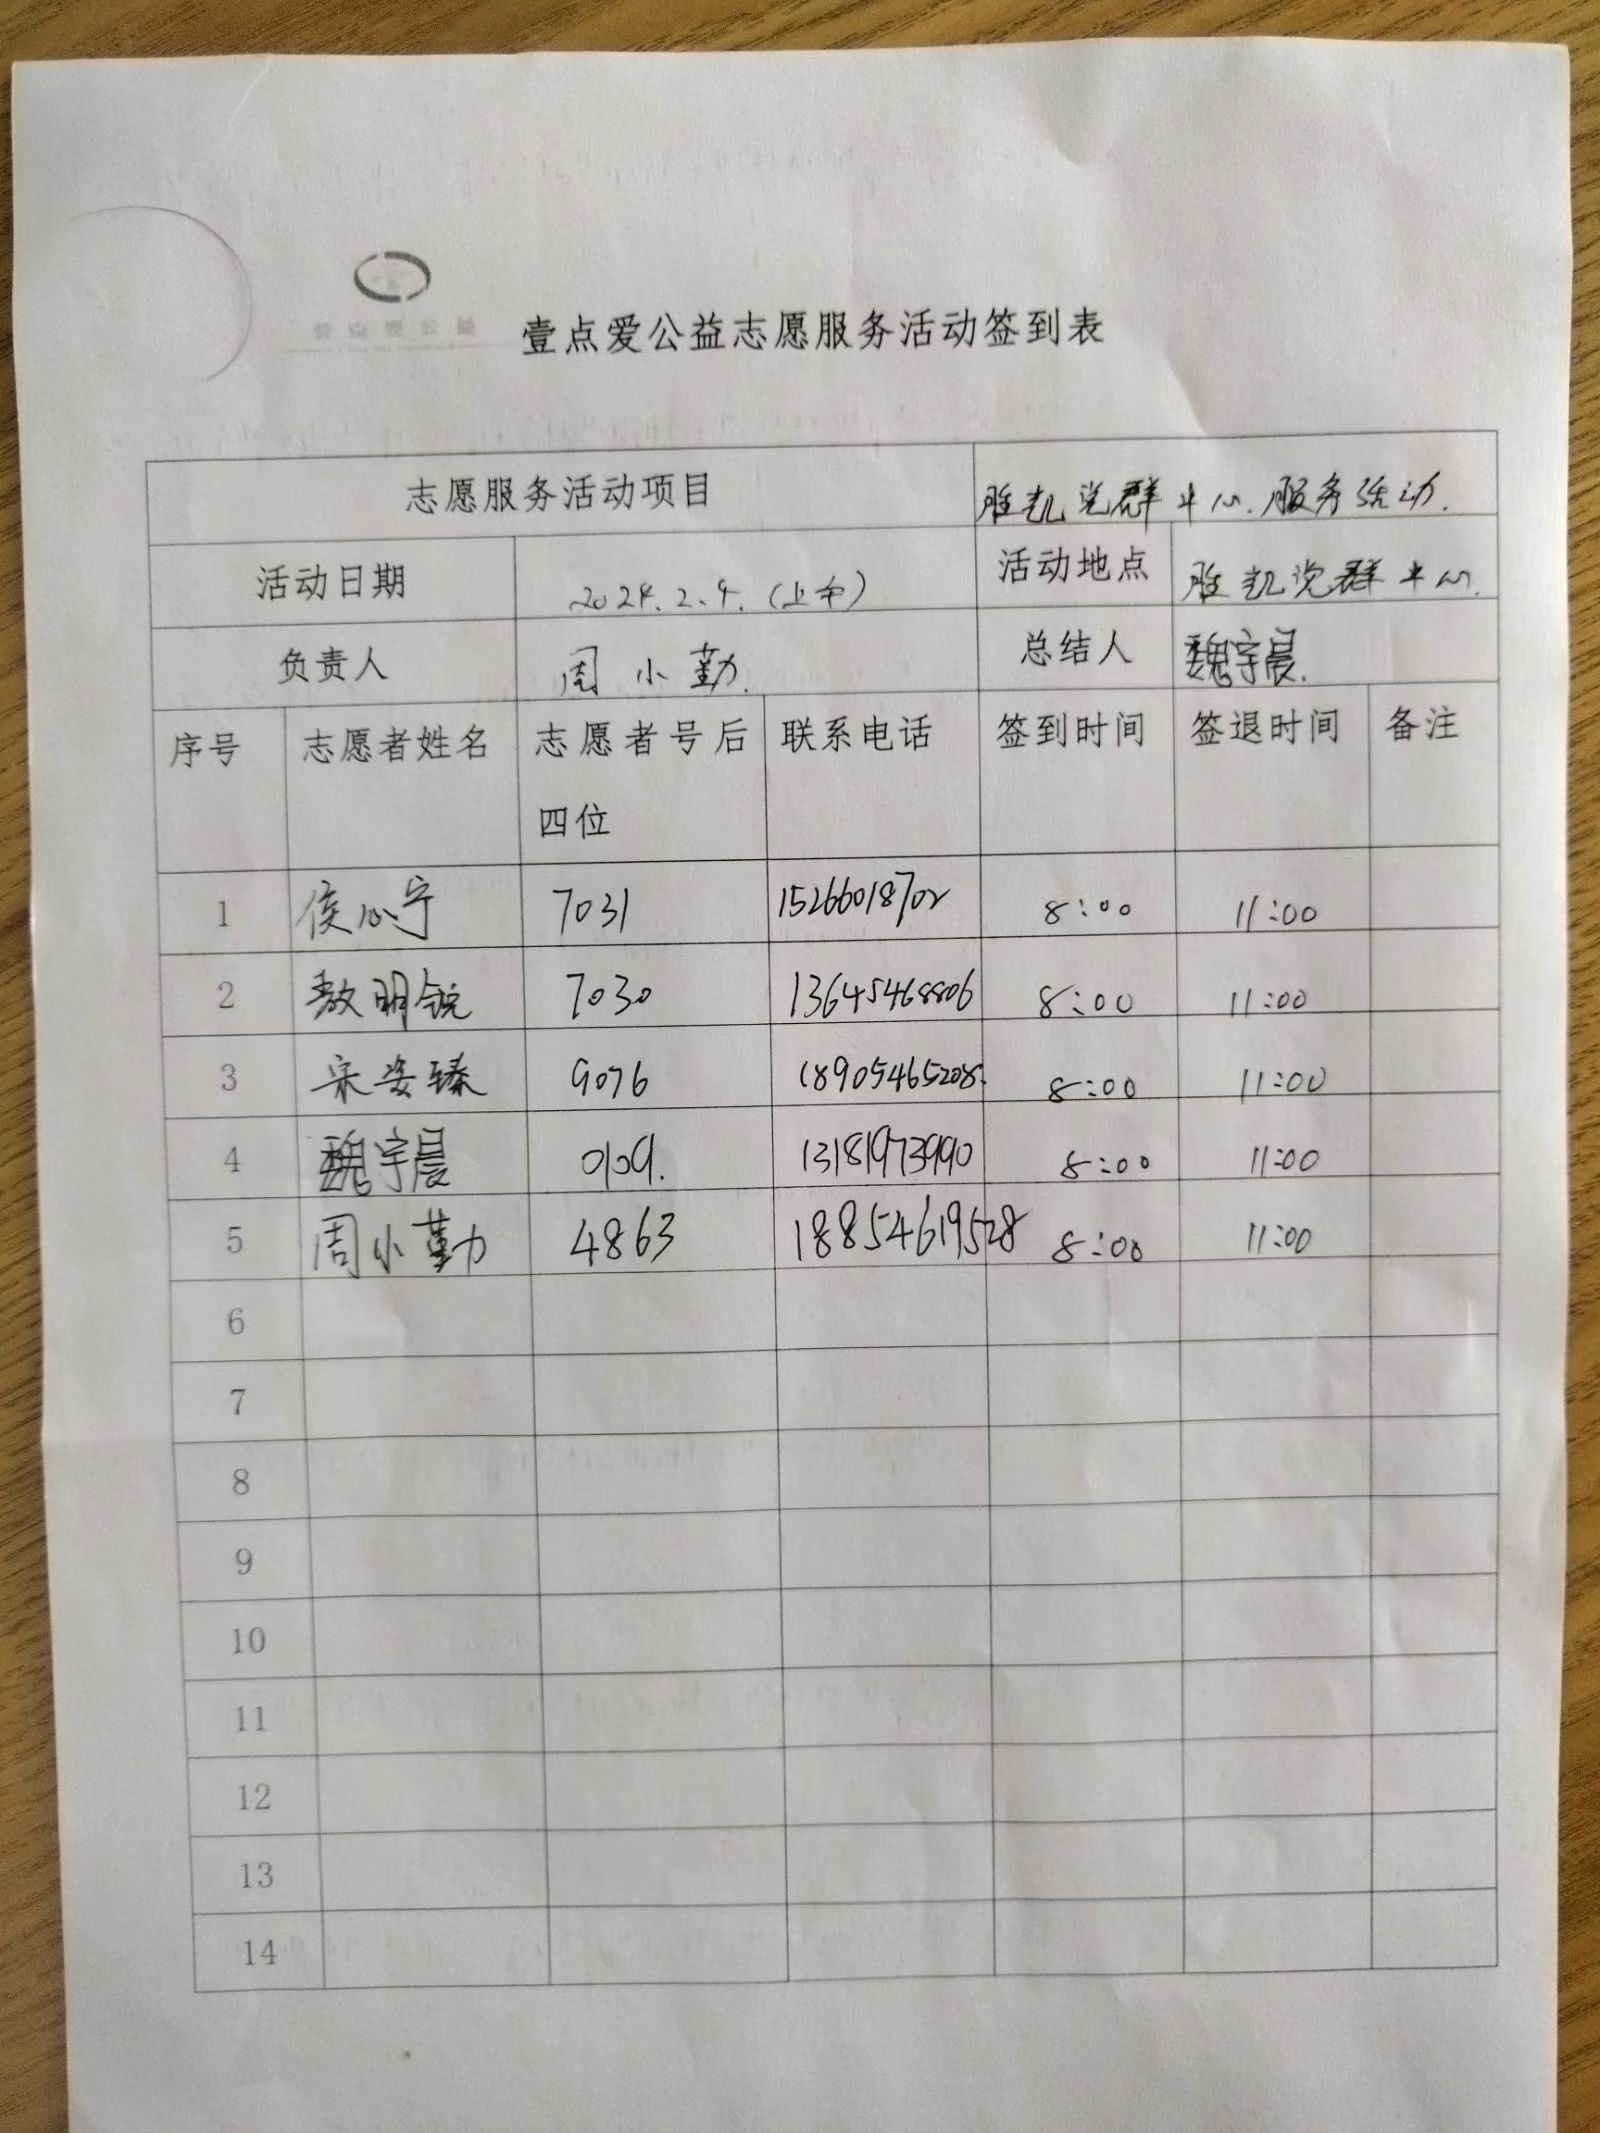 壹点爱公益志愿服务活动签到表
志愿服务活动项目 胜凯党群中心.服务活动.
活动日期 2024.2.4.(上午) 活动地点 胜凯党群中心.
负责人 周小勤. 总结人 魏宇晨.
序号 志愿者姓名 志愿者号后四位 联系电话 签到时间 签退时间 备注
1 侯心宁 7031 15266018702 8:00 11:00
2 敖明锐 7030 13645468806 8:00 11:00
3 宋姿臻 9076 18905465208. 8:00 11:00
4 魏宇晨 0109. 13181973990 8:00 11:00
5 周小勤 4863 18854619528 8:00 11:00
6
7
8
9
10
11
12
13
14